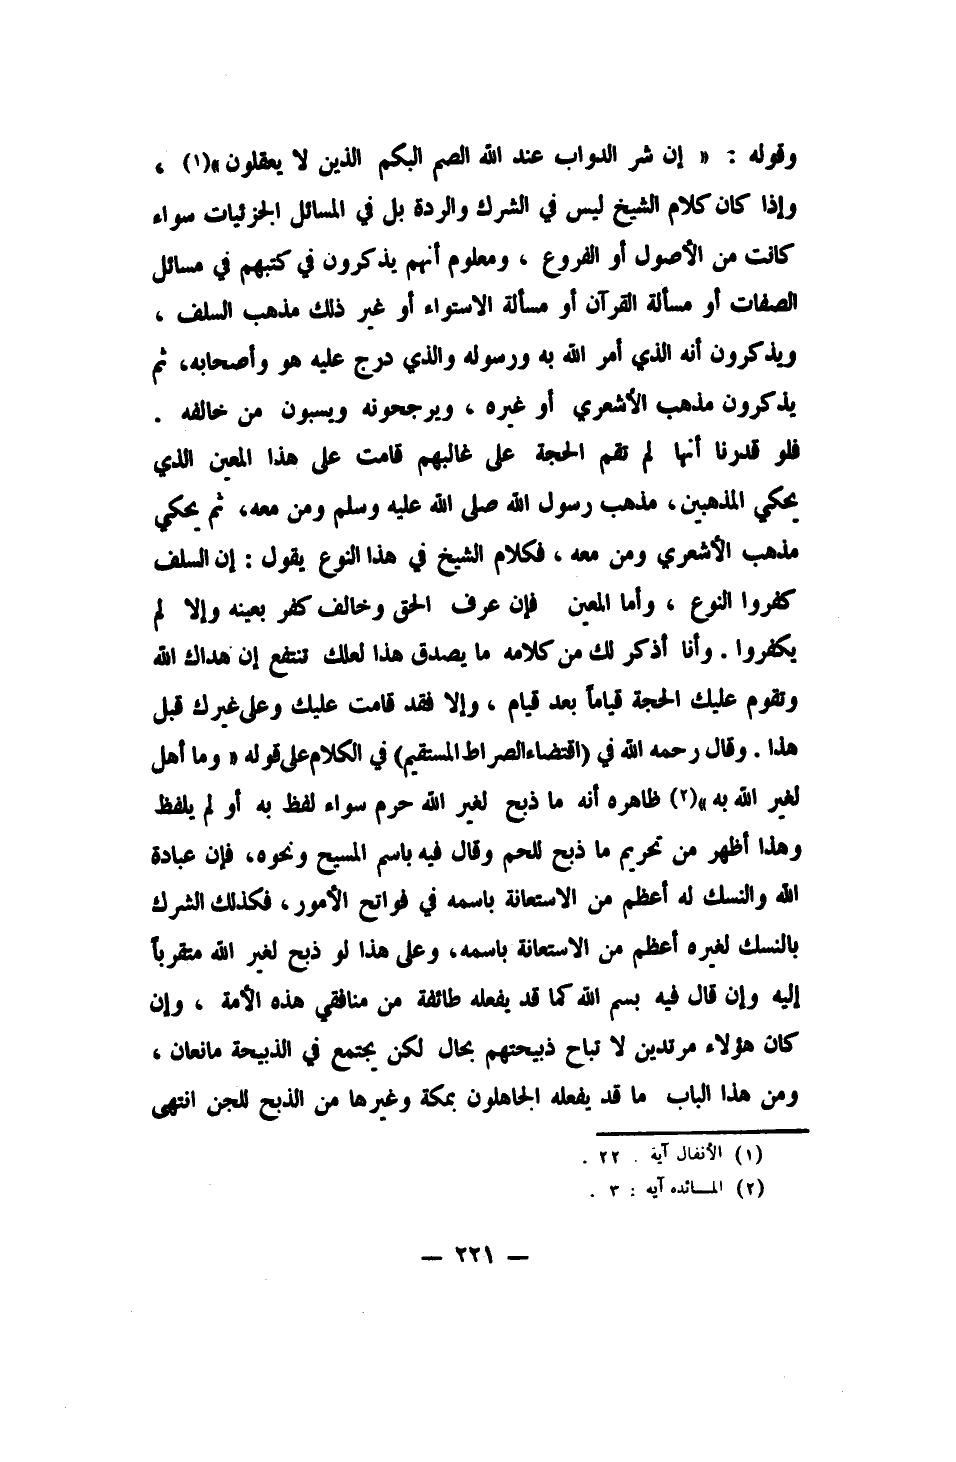 وقوله : « إن شر الدواب عند الله الصم البكم الذين لا يعقلون »(١) ،
وإذا كان كلام الشيخ ليس في الشرك والردة بل في المسائل الجزئيات سواء
كانت من الأصول أو الفروع ، ومعلوم أنهم يذكرون في كتبهم في مسائل
الصفات أو مسألة القرآن أو مسألة الاستواء أو غير ذلك مذهب السلف ،
ويذكرون أنه الذي أمر الله به ورسوله والذي درج عليه هو وأصحابه، ثم
يذكرون مذهب الأشعري أو غيره ، ويرجحونه ويسبون من خالفه .
فلو قدرنا أنها لم تقم الحجة على غالبهم قامت على هذا المعين الذي
يحكي المذهبين، مذهب رسول الله صلى الله عليه وسلم ومن معه، ثم يحكي
مذهب الأشعري ومن معه ، فكلام الشيخ في هذا النوع يقول : إن السلف
كفروا النوع ، وأما المعين فإن عرف الحق وخالف كفر بعينه وإلا لم
يكفروا . وأنا أذكر لك من كلامه ما يصدق هذا لعلك تنتفع إن هداك الله
وتقوم عليك الحجة قياماً بعد قيام ، وإلا فقد قامت عليك وعلى غيرك قبل
هذا . وقال رحمه الله في (اقتضاء الصراط المستقيم) في الكلام على قوله « وما أهل
لغير الله به »(٢) ظاهره أنه ما ذبح لغير الله حرم سواء لفظ به أو لم يلفظ
وهذا أظهر من تحريم ما ذبح للحم وقال فيه باسم المسيح ونحوه، فإن عبادة
الله والنسك له أعظم من الاستعانة باسمه في فواتح الأمور ، فكذلك الشرك
بالنسك لغيره أعظم من الاستعانة باسمه، وعلى هذا لو ذبح لغير الله متقرباً
إليه وإن قال فيه بسم الله كما قد يفعله طائفة من منافقي هذه الأمة ، وإن
كان هؤلاء مرتدين لا تباح ذبيحتهم بحال لكن يجتمع في الذبيحة مانعان ،
ومن هذا الباب ما قد يفعله الجاهلون بمكة وغيرها من الذبح للجن انتهى
(١) الأنفال آية . ٢٢ .
(٢) المـائده آيه : ٣ .
— ٢٢١ —